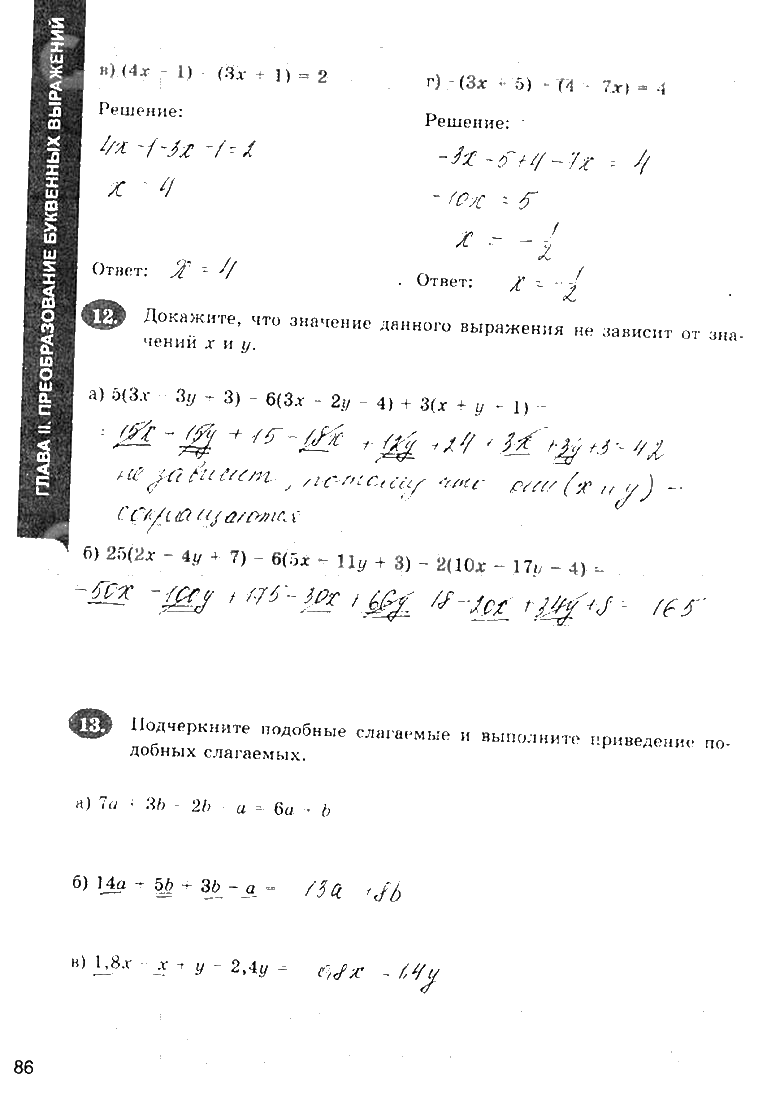 ГЛАВА II. ПРЕОБРАЗОВАНИЕ БУКВЕННЫХ ВЫРАЖЕНИЙ
в) (4x - 1) - (3x + 1) = 2
Решение:
4x - 1 - 3x - 1 = 2
x = 4
Ответ: x = 4
г) -(3x + 5) - (4 - 7x) = 4
Решение:
-3x - 5 + 4 - 7x = 4
-10x = 5
x = -1/2
Ответ: x = -1/2
12. Докажите, что значение данного выражения не зависит от зна-
чений x и y.
а) 5(3x - 3y + 3) - 6(3x - 2y - 4) + 3(x + y - 1) =
= 15x - 15y + 15 - 18x + 12y + 24 + 3x + 3y + 3 = 42
не зависит, потому что они (x и y) -
сокращаются
б) 25(2x - 4y + 7) - 6(5x - 11y + 3) - 2(10x - 17y - 4) =
= 50x - 100y + 175 - 30x + 66y - 18 - 20x + 34y + 8 = 165
13. Подчеркните подобные слагаемые и выполните приведение по-
добных слагаемых.
а) 7a + 3b - 2b - a = 6a + b
б) 14a + 5b + 3b - a = 13a + 8b
в) 1,8x - x + y - 2,4y = 0,8x - 1,4y
86